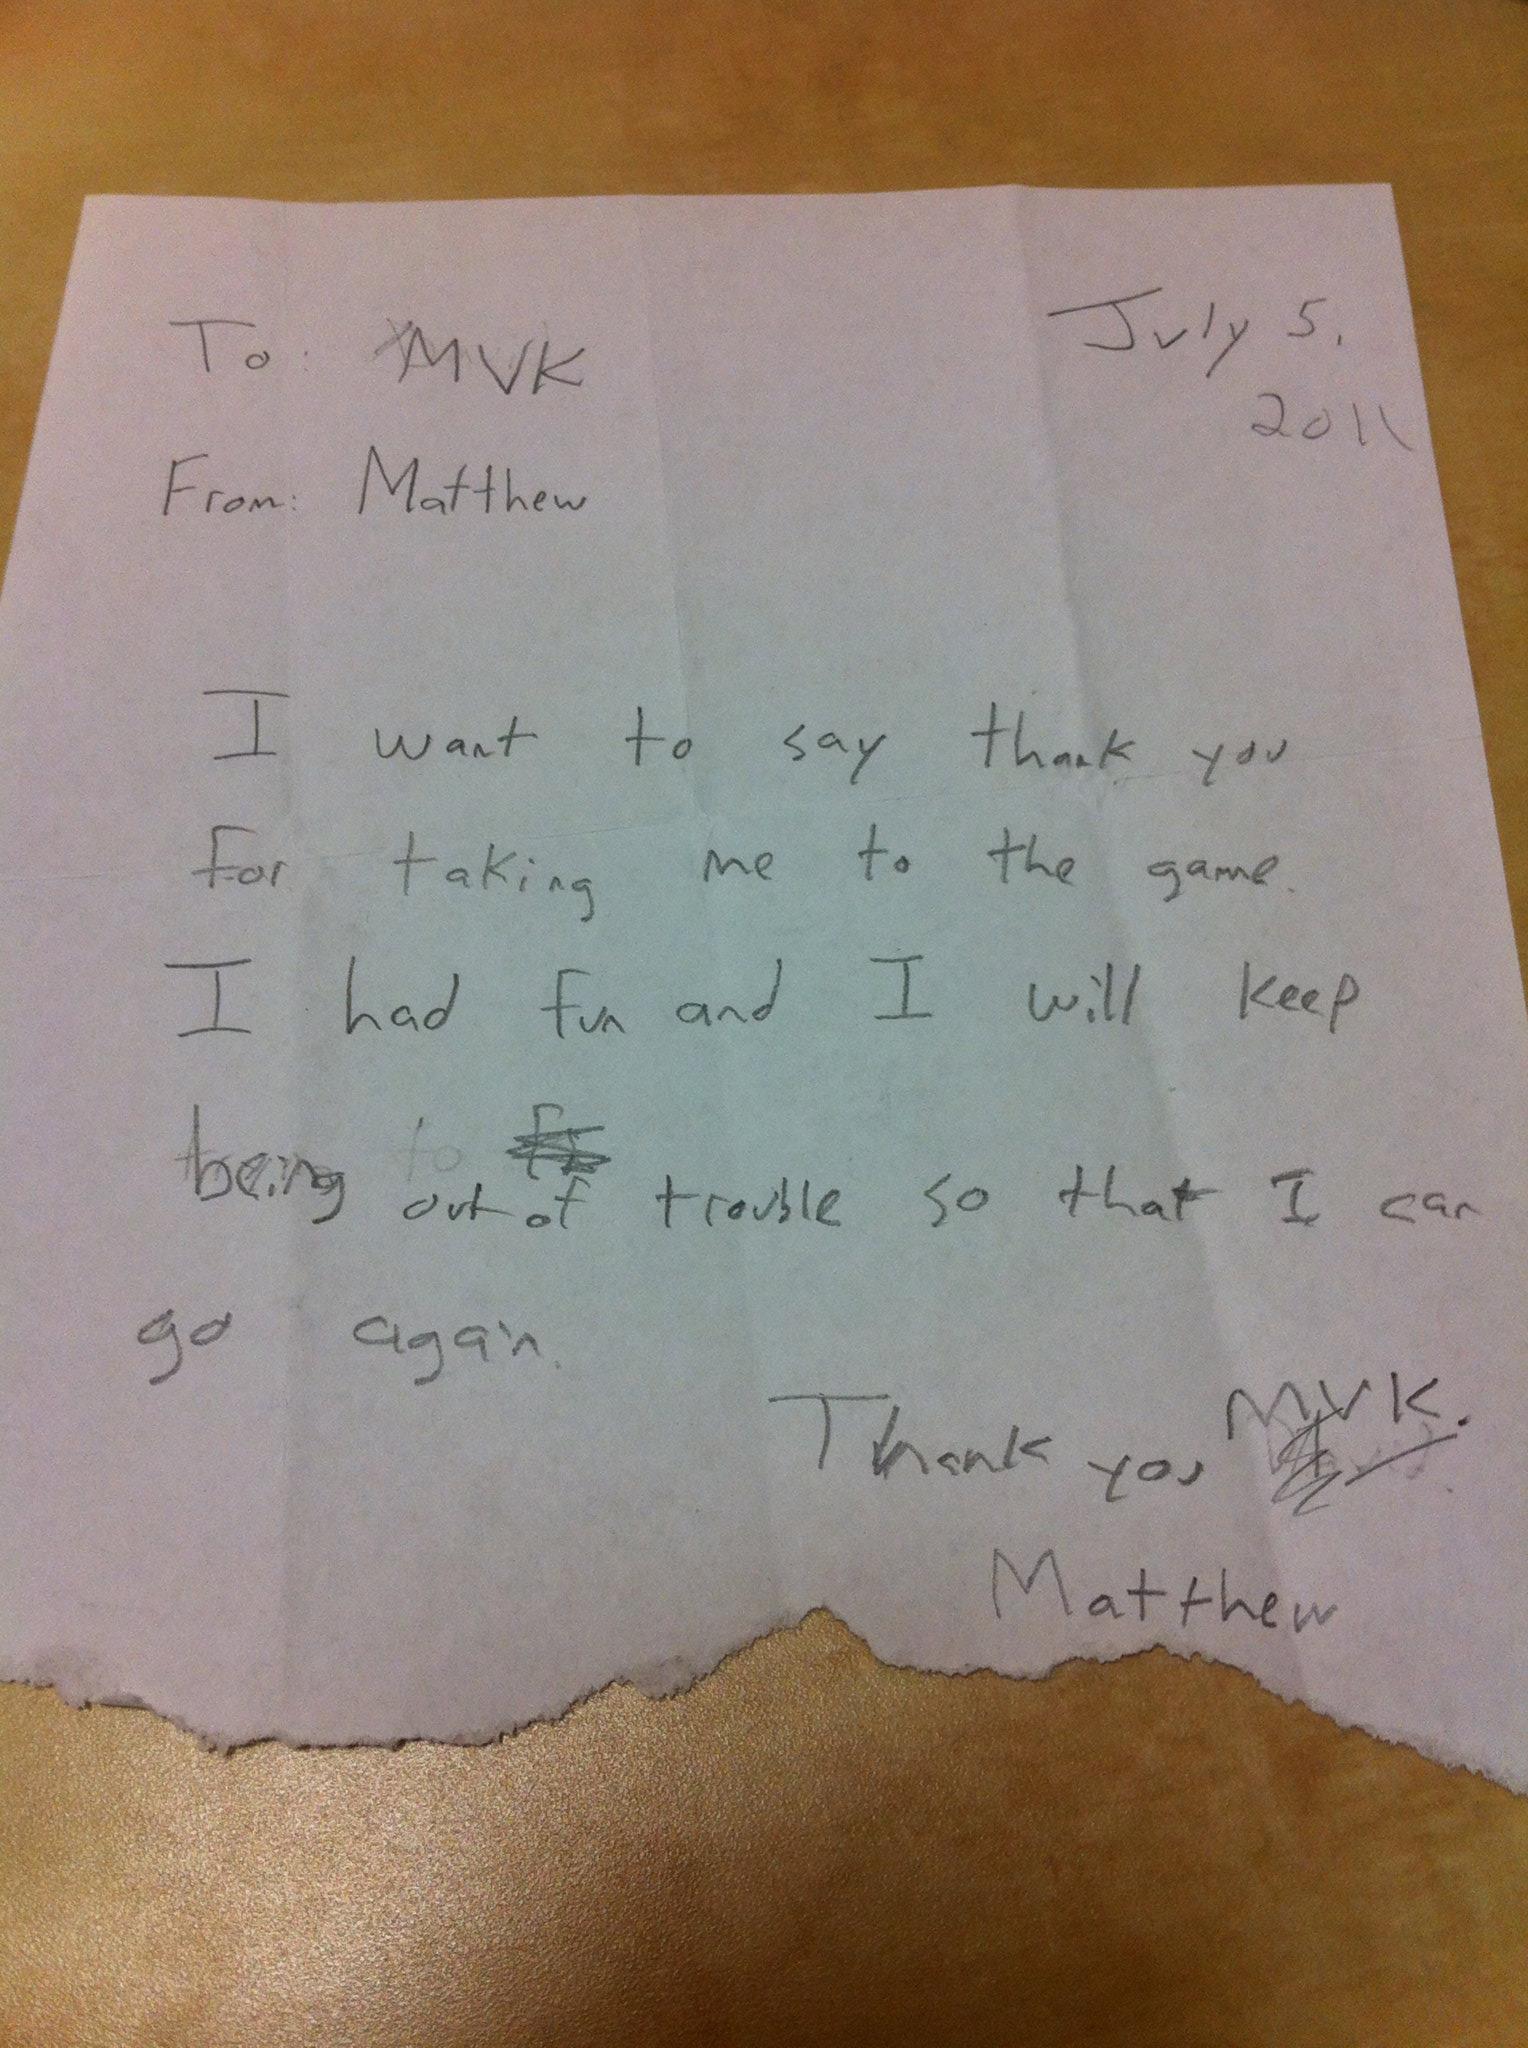 To: MVK
July 5,
2011
From: Matthew
I want to say thank you
for taking me to the game.
I had fun and I will keep
being out of trouble so that I can
go again.
Thank you MVK.
Matthew